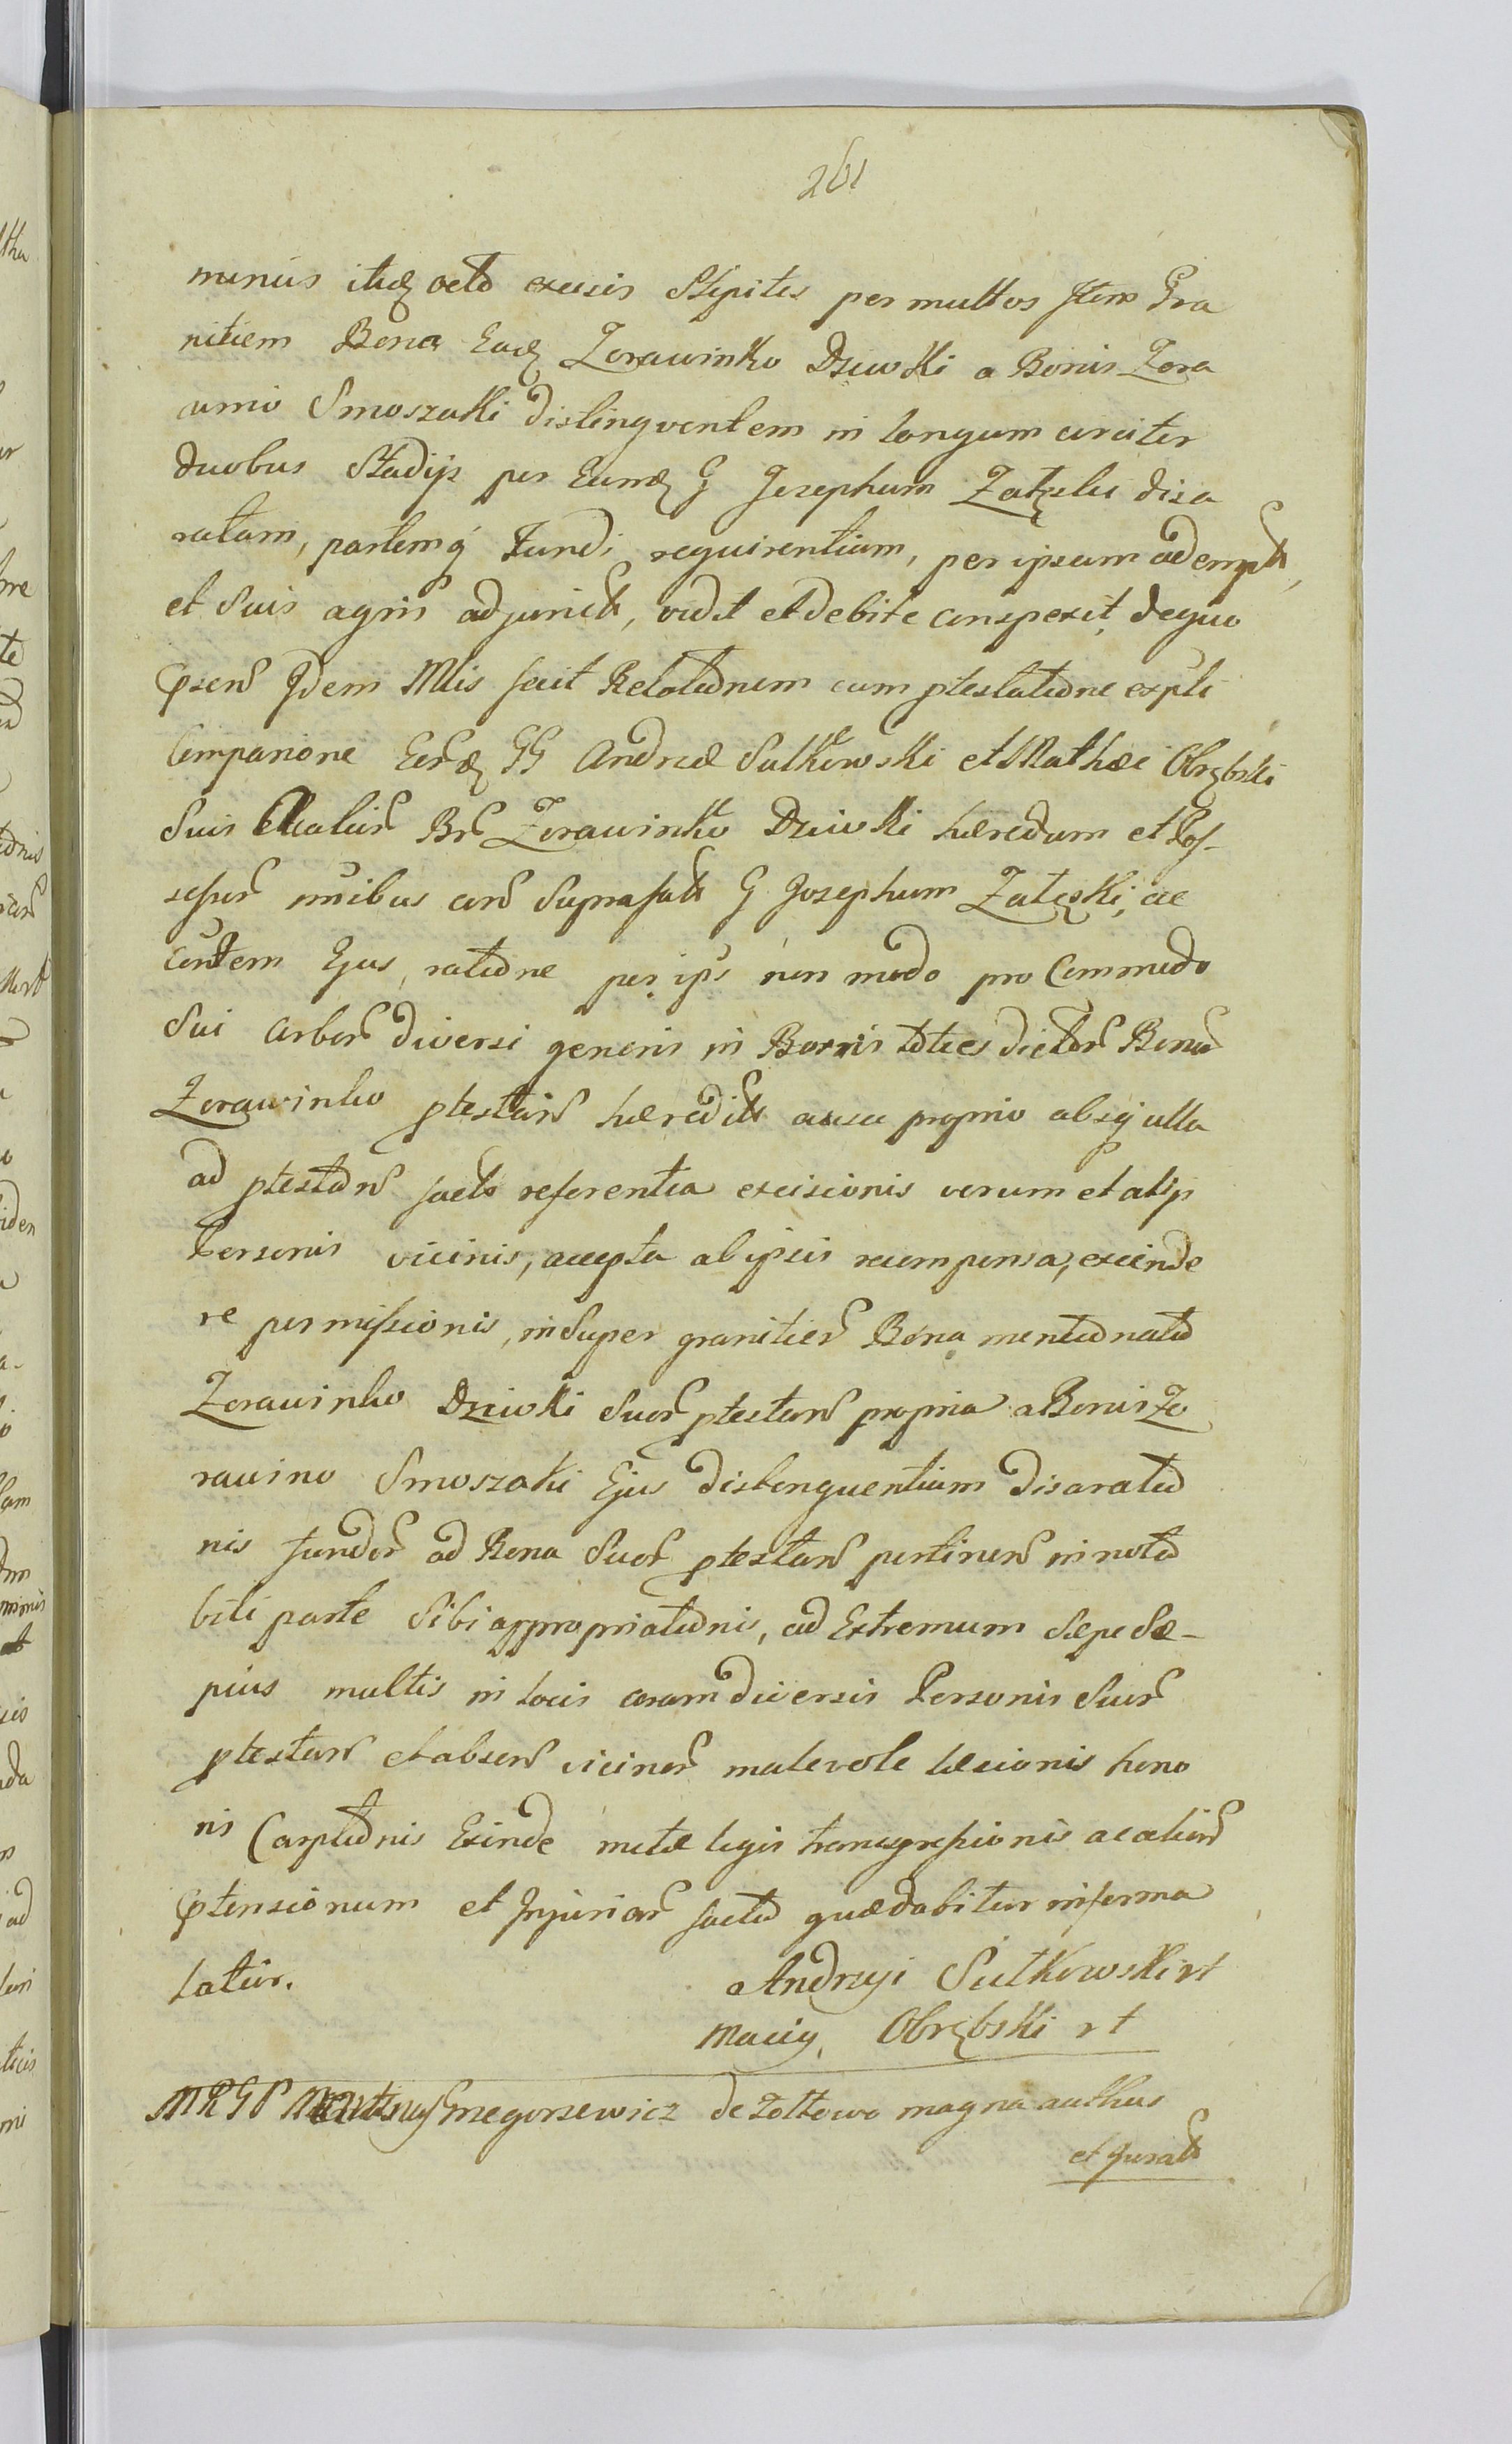 261
minus itidẽ octo excisis Stipites per multos Item Gra
nitiem Bona Eadẽ Zorawinko Dziwki a Bonis Zora
wino Smoszaki distingventem in longum circiter
duobus Stadijs per Eundẽ G Josephum Załęski disa
ratam, partemq̃ Fundi requirentiam, per ipsum adempt,
et Suis agris adjunct, vidit et debite conspexit, de quo
Idem Mlis fecit Relatõnem cum ptestatõne
Comparione GG Andreæ Sułkowski et Mathæi Obrębski
Suis Br Zorawinko Dziwki hæredum et Pos-
sessor omnibus con Suprafat G Josephum Załęski, ac
contem Ejus, ratõne per ips non modo pro Commodo
Sui arbor diversi generis in Borris toties dictor Bonor
Zorawinko ptestan hæredit ausu proprio absq̃ ulla
ad ptestan facto referentia excisionis verum et alijs
Personis vicinis, accepta ab ipsis recompensa, excinde
re permissionis, insuper granitier Bona mentionata
Zorawinko Dziwki Suor ptestan propria a Bonis Zo
rawino Smoszaki Ejus distinguentium disaratio
nis fundor ad Bona Suor ptestan pertinen in nota
bili parte Sibi appropriationis, ad Extremum Sæpe Sæ-
pius multis in locis coram diversis Personis Suor
ptestan et absen vicinor malevole læsionis hono
ris Carptionis Exinde metæ legis transgressionis ac alior
ptensionum et Injuriar facta quæ dabitur in forma
latiûr.
Andrzyi Sułkowski rt
Maciy, Obrębski rt
MRGP Grzegorzewicz de Zołtowo magna authus
et Jurat